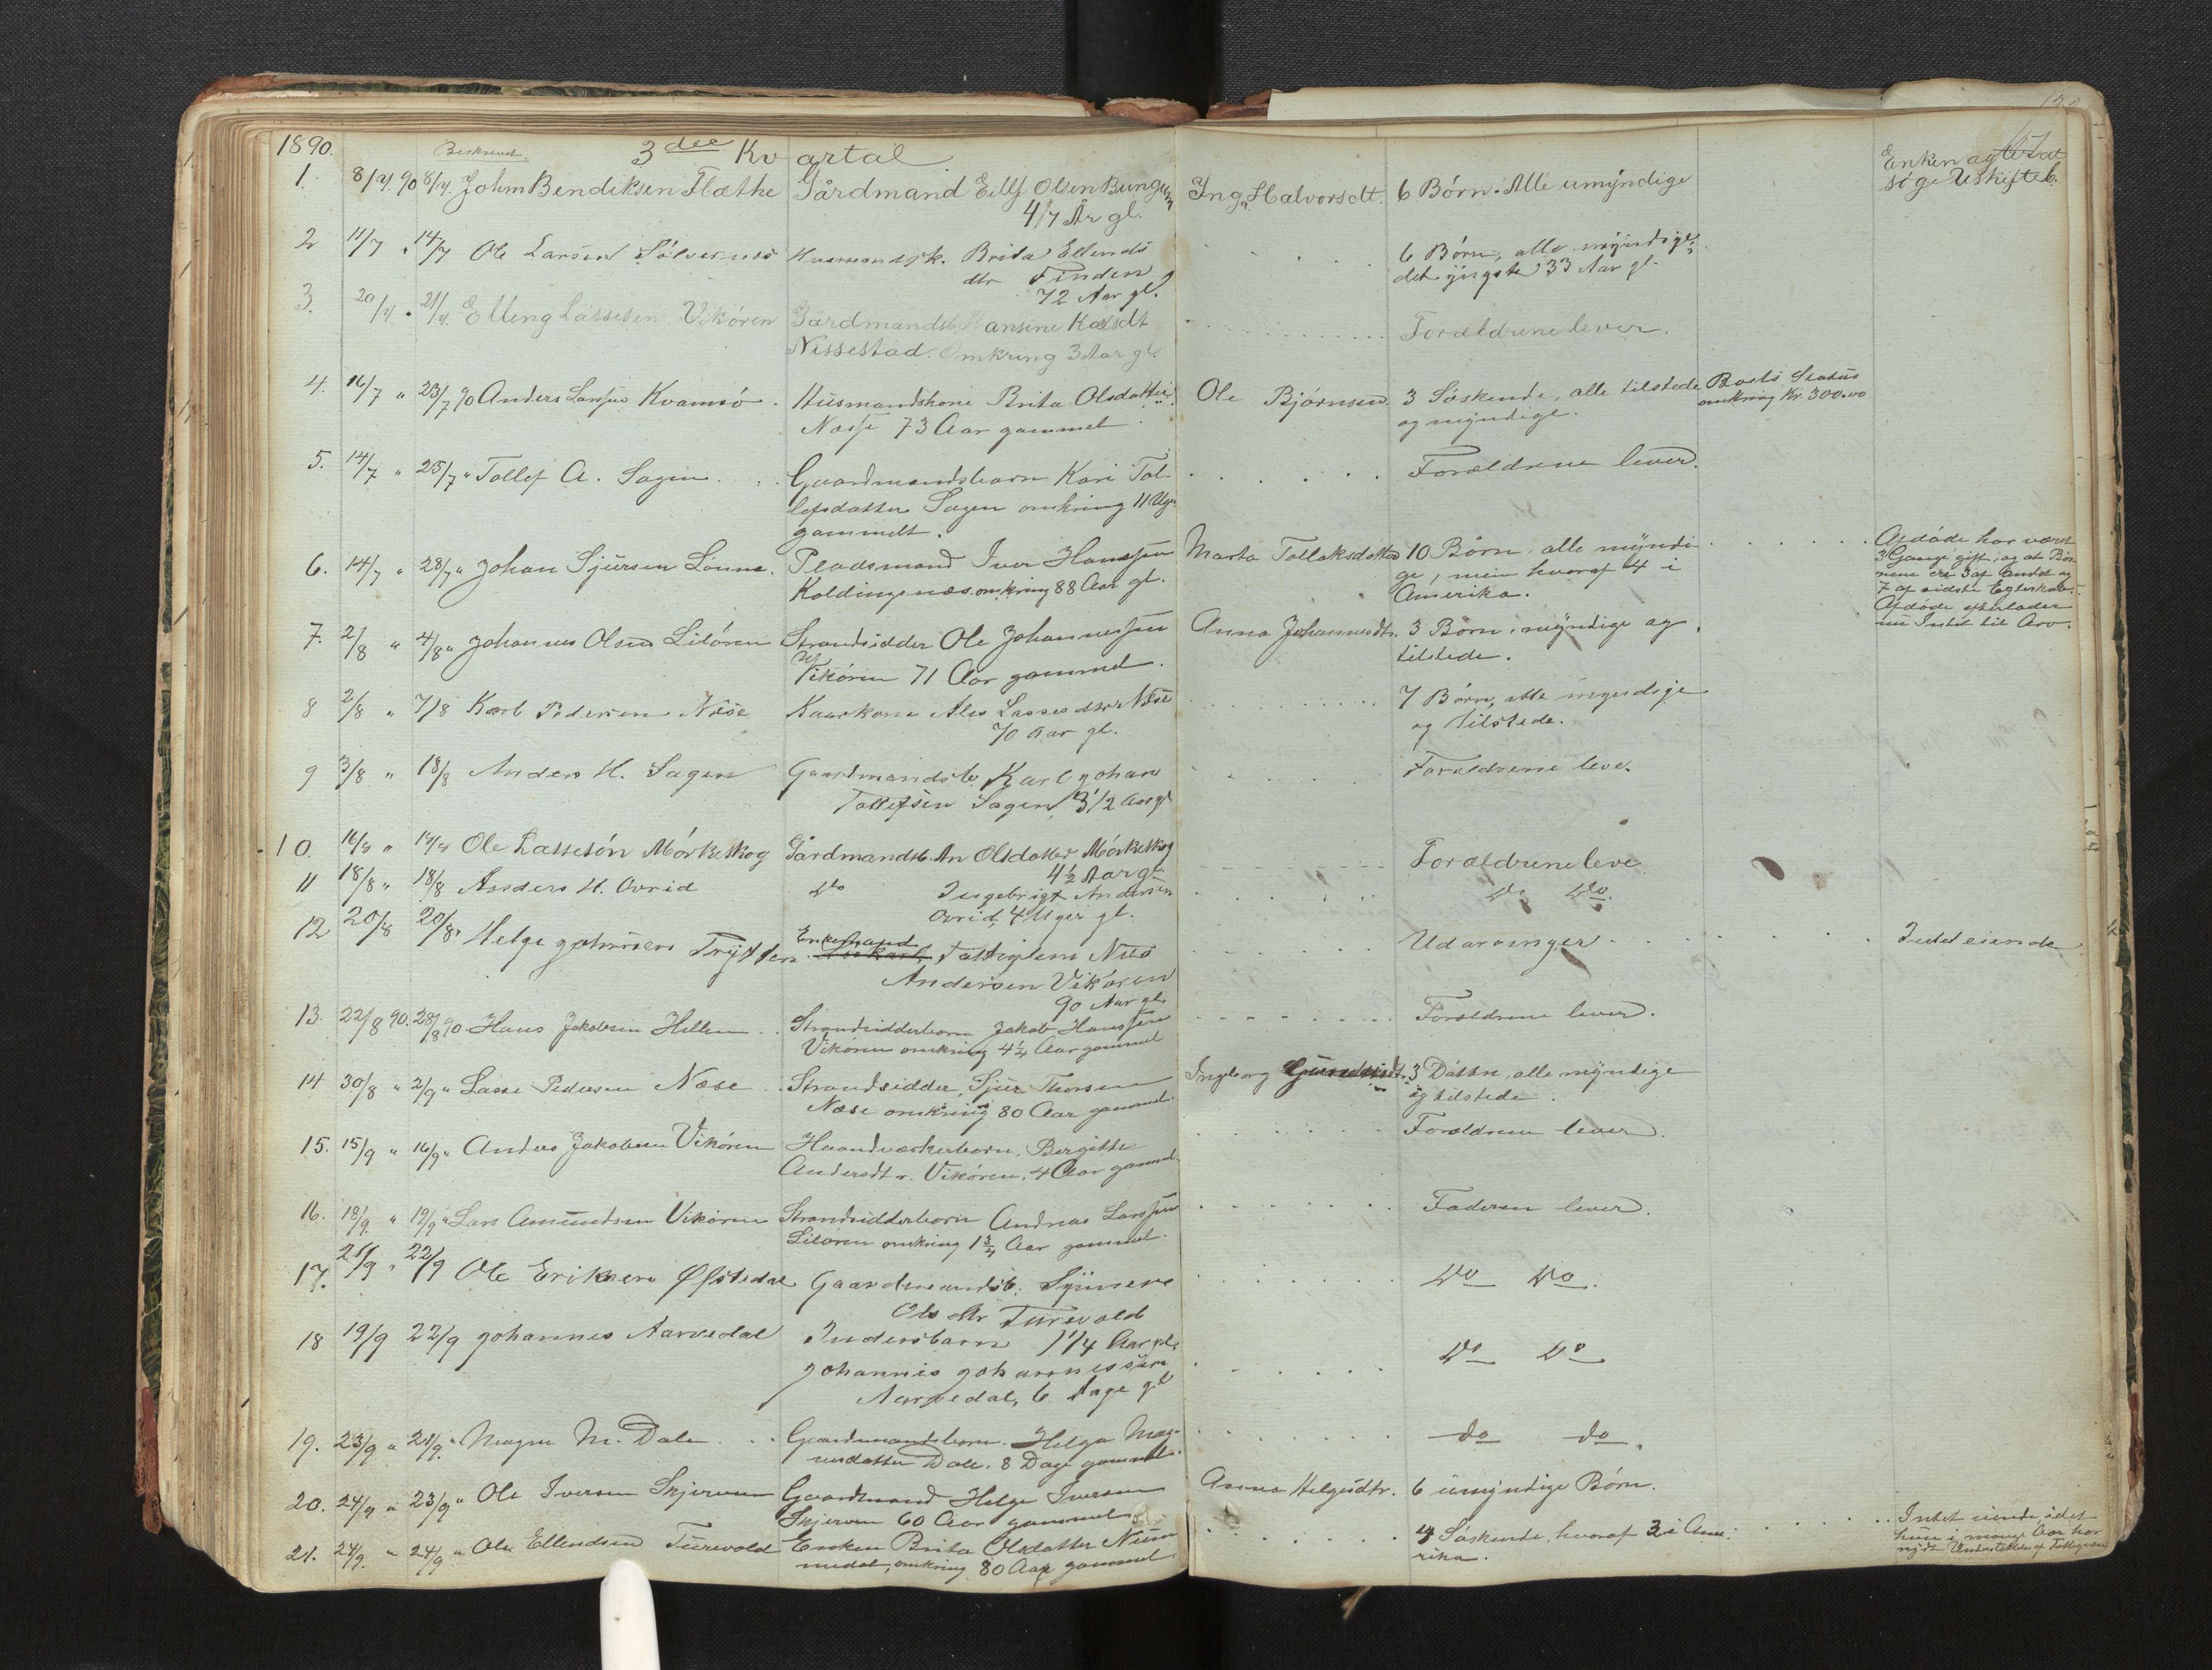 1890. 3dee Kvartal
1. 8/7. 90 8/7. John Bendiksen Flæthe Gårdmand Eilif Olsen Bungum Inga Halvorsdt. 6 Børn. Alle umyndige Enken agter at
47 År gl. søge Uskifteb.
2 11/7 " 14/7 Ole Larsen Brita Ellends 6 Børn, alle myndige,
dtr Finden det yngste 33 Aar gl.
72 Aar gl.
3. 20/7. " 21/7. Elling Lassesen Vikøren Gårdmandsb. Hansine Karlsdt Forældrene lever.
Nissestad. Omkring 3 Aar gl.
4. 16/7 " 23/7 90 Anders Larssen Kvamsø. Husmandskone Brita Olsdatter Ole Bjørnsen. 3 Søskende, alle tilstede Boets Status
Næsse 73 Aar gammel. og myndige. omkring Kr. 300.00
5. 14/7 " 25/7 " Tollef A. Sagen. Gaardmandsbarn Kari Tol- Forældrene lever.
lefsdatter Sagen omkring 11 Uger
gammelt.
6. 14/7 " 28/7 " Johan Sjursen Lonne. Pladsmand Iver Hanssen Marta Tollaksdatter 10 Børn, alle myndi- Afdøde har været
Koldingsnæs. omkring 88 Aar gl. ge, men hvoraf 4 i 3 Gange gift, og at Bør-
Amerika. nene er 3 af andet og
7 af sidste Egteskab.
Afdøde efterlader
nu Intet til Arv.
7. 2/8 " 4/8 " Johannes Olsen Liløren Strandsidder Ole Johannessen Anna Johannesdtr. 3 Børn, myndige og
Vikøren 71 Aar gammel. tilstede.
8 2/8 " 7/8 Karl Pedersen Næse Kaarkone Ales Lassesdtr Næse 7 Børn, alle myndige
70 Aar gl. og tilstede.
9 3/8 " 18/8 Anders H. Sagen Gaardmandsb. Karl Johan Forældrene leve.
Tollefsen Sagen, 3 1/2 Aar gl
10. 16/8 " 17/8 Ole Lassesøn Mørkeskog Gårdmandsb. An Olsdatter Mørkeskog Forældrene leve
4 1/2 Aar gl.
11 18/8 " 18/8 Anders H. Ovrid do Ingebrigt Andersen do do.
Ovrid, 4 Uger gl.
12 20/8 20/8 " Helge Johnsen Enkemand Fattiglem Nils Udarvinger Intet eiende
Andersen Vikøren
90 Aar gl.
13. 22/8 90. 28/8 90 Hans Jakobsen Hellem Strandsidderbarn Jakob Hanssen Forældrene lever.
Vikøren omkring 4 1/4 Aar gammel
14 30/8 " 2/9 " Lasse Pedersen Næse Strandsidder, Sjur Thorsen Ingeborg 3 Døttre, alle myndige
Næse omkring 80 Aar gammel. og tilstede.
15. 15/9 " 16/9 " Anders Jakobsen Vikøren Haandværkerbarn, Bergitte Forældrene lever.
Andersdtr. Vikøren, 4 Aar gammel.
16. 18/9 " 19/9 " Lars Amundsen Vikøren Strandsidderbarn Andreas Larssen Faderen lever.
Liløren omkring 1 3/4 Aar gammel.
17. 21/9 " 22/9 Ole Eriksen Øfstedal Gaardmandsb. Synneve do do.
Ols dtr Turvold
18 19/9 22/9 Johannes Aarvedal Indersbarn 1 1/4 Aar gl. do do
Johannis Johannessen
Aarvedal, 6 Dage gl
19. 23/9 " 21/9. " Magne M. Dale Gaardmandsbarn. Helga Mag- do do.
nusdatter Dale, 8 Dage gammel.
20. 24/9 " 23/9 " Ole Iversen Skjerven Gaardmand Helge Iversen Anna Helgesdtr. 6 umyndige Børn.
Skjerven 60 Aar gammel.
21. 24/9. " 24/9 " Ole Ellendsen Turvold Enken Brita Olsdatter Num- 4 Søskende, hvoraf 3 i Ame- Intet eiende, idet
medal, omkring 80 Aar gammel. rika. hun i mange Aar har
nydt Understøttelse af Fattigvæsen